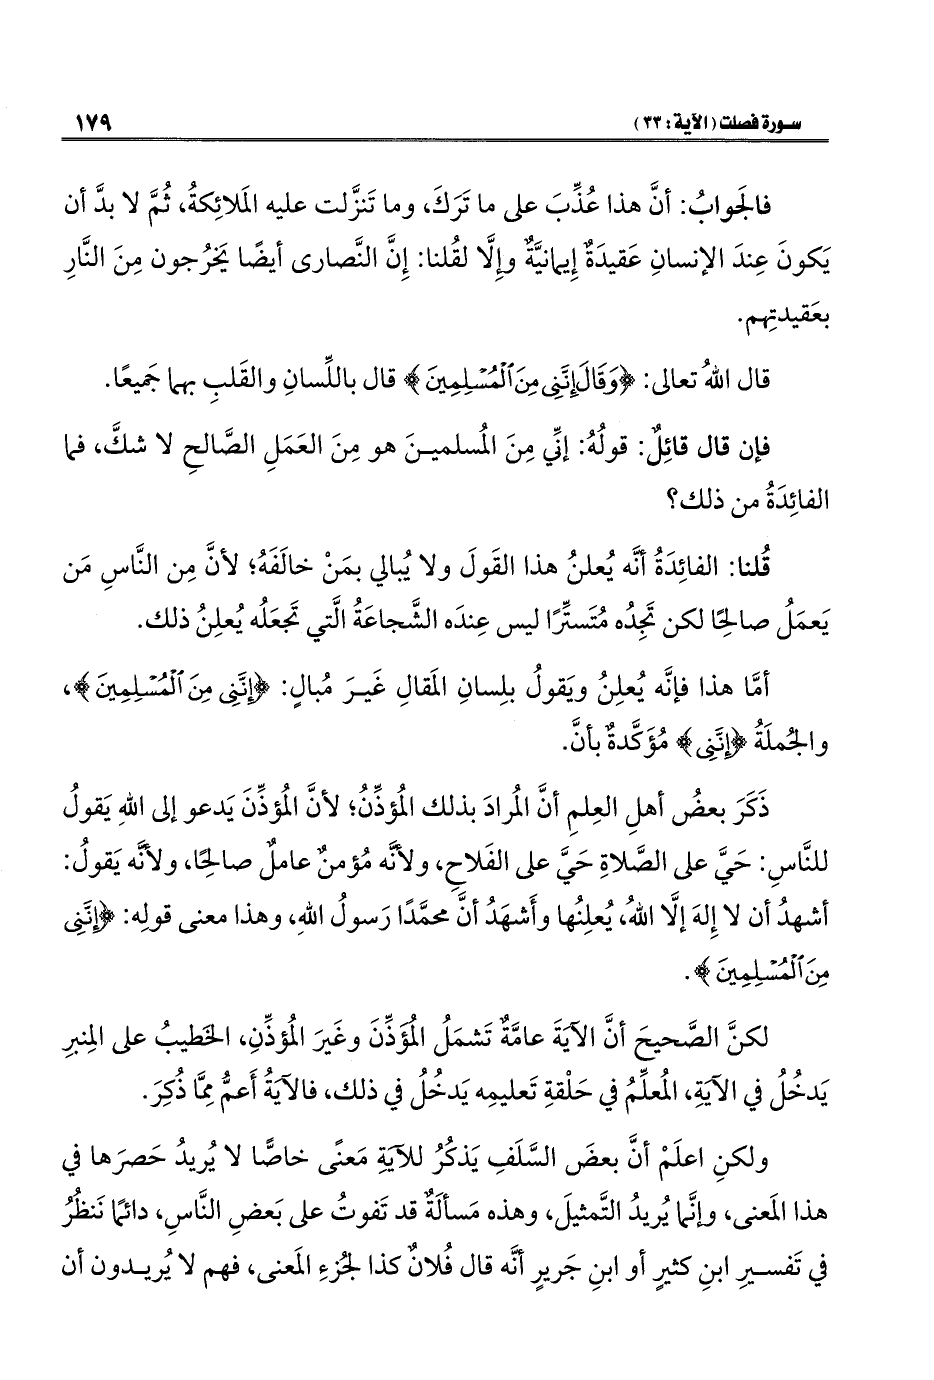 سورة فصلت (الآية: ٣٣) ١٧٩
فالجَوابُ: أنَّ هذا عُذِّبَ على ما تَركَ، وما تَنزَّلت عليه المَلائِكةُ، ثُمَّ لا بدَّ أن
يَكونَ عِندَ الإنسانِ عَقيدَةٌ إيمانيَّةٌ وإلَّا لقُلنا: إنَّ النَّصارى أيضًا يَخرُجون مِنَ النَّارِ
بعَقيدتِهِم.
قال اللهُ تعالى: ﴿وَقَالَ إِنَّنِى مِنَ ٱلْمُسْلِمِينَ﴾ قال باللِّسانِ والقَلبِ بهما جَميعًا.
فإن قال قائِلٌ: قولُهُ: إنِّي مِنَ المُسلمينَ هو مِنَ العَمَلِ الصَّالحِ لا شكَّ، فما
الفائِدَةُ من ذلك؟
قُلنا: الفائِدَةُ أنَّه يُعلنُ هذا القَولَ ولا يُبالي بمَنْ خالَفَهُ؛ لأنَّ مِن النَّاسِ مَن
يَعمَلُ صالحًا لكن تَجِدُه مُتَستِّرًا ليس عِندَه الشَّجاعَةُ الَّتي تَجعَلُه يُعلِنُ ذلك.
أمَّا هذا فإنَّه يُعلِنُ ويَقولُ بلِسانِ المَقالِ غَيرَ مُبالٍ: ﴿إِنَّنِى مِنَ ٱلْمُسْلِمِينَ﴾،
والجُملَةُ ﴿إِنَّنِى﴾ مُؤَكَّدةٌ بأنَّ.
ذَكَرَ بعضُ أهلِ العِلمِ أنَّ المُرادَ بذلك المُؤذِّنُ؛ لأنَّ المُؤذِّنَ يَدعو إلى اللهِ يَقولُ
للنَّاسِ: حَيَّ على الصَّلاةِ حَيَّ على الفَلاحِ، ولأنَّه مُؤمنٌ عاملٌ صالحًا، ولأنَّه يَقولُ:
أشهدُ أن لا إلهَ إلَّا اللهُ، يُعلِنُها وأشهَدُ أنَّ محمَّدًا رَسولُ اللهِ، وهذا معنى قولِه: ﴿إِنَّنِى
مِنَ ٱلْمُسْلِمِينَ﴾.
لكنَّ الصَّحيحَ أنَّ الآيَةَ عامَّةٌ تَشمَلُ المُؤَذِّنَ وغَيرَ المُؤذِّنِ، الخَطيبُ على المِنبرِ
يَدخُلُ في الآيَةِ، المُعلِّمُ في حَلْقةِ تَعليمِه يَدخُلُ في ذلك، فالآيَةُ أَعمُّ مِمَّا ذُكِرَ.
ولكنِ اعلَمْ أنَّ بعضَ السَّلَفِ يَذكُرُ للآيَةِ مَعنًى خاصًّا لا يُريدُ حَصرَها في
هذا المَعنى، وإنَّما يُريدُ التَّمثيلَ، وهذه مَسألَةٌ قد تَفوتُ على بَعضِ النَّاسِ، دائمًا نَنظُرُ
في تَفسيرِ ابنِ كثيرٍ أو ابنِ جَريرٍ أنَّه قال فُلانٌ كذا لجُزءِ المَعنى، فهم لا يُريدون أن